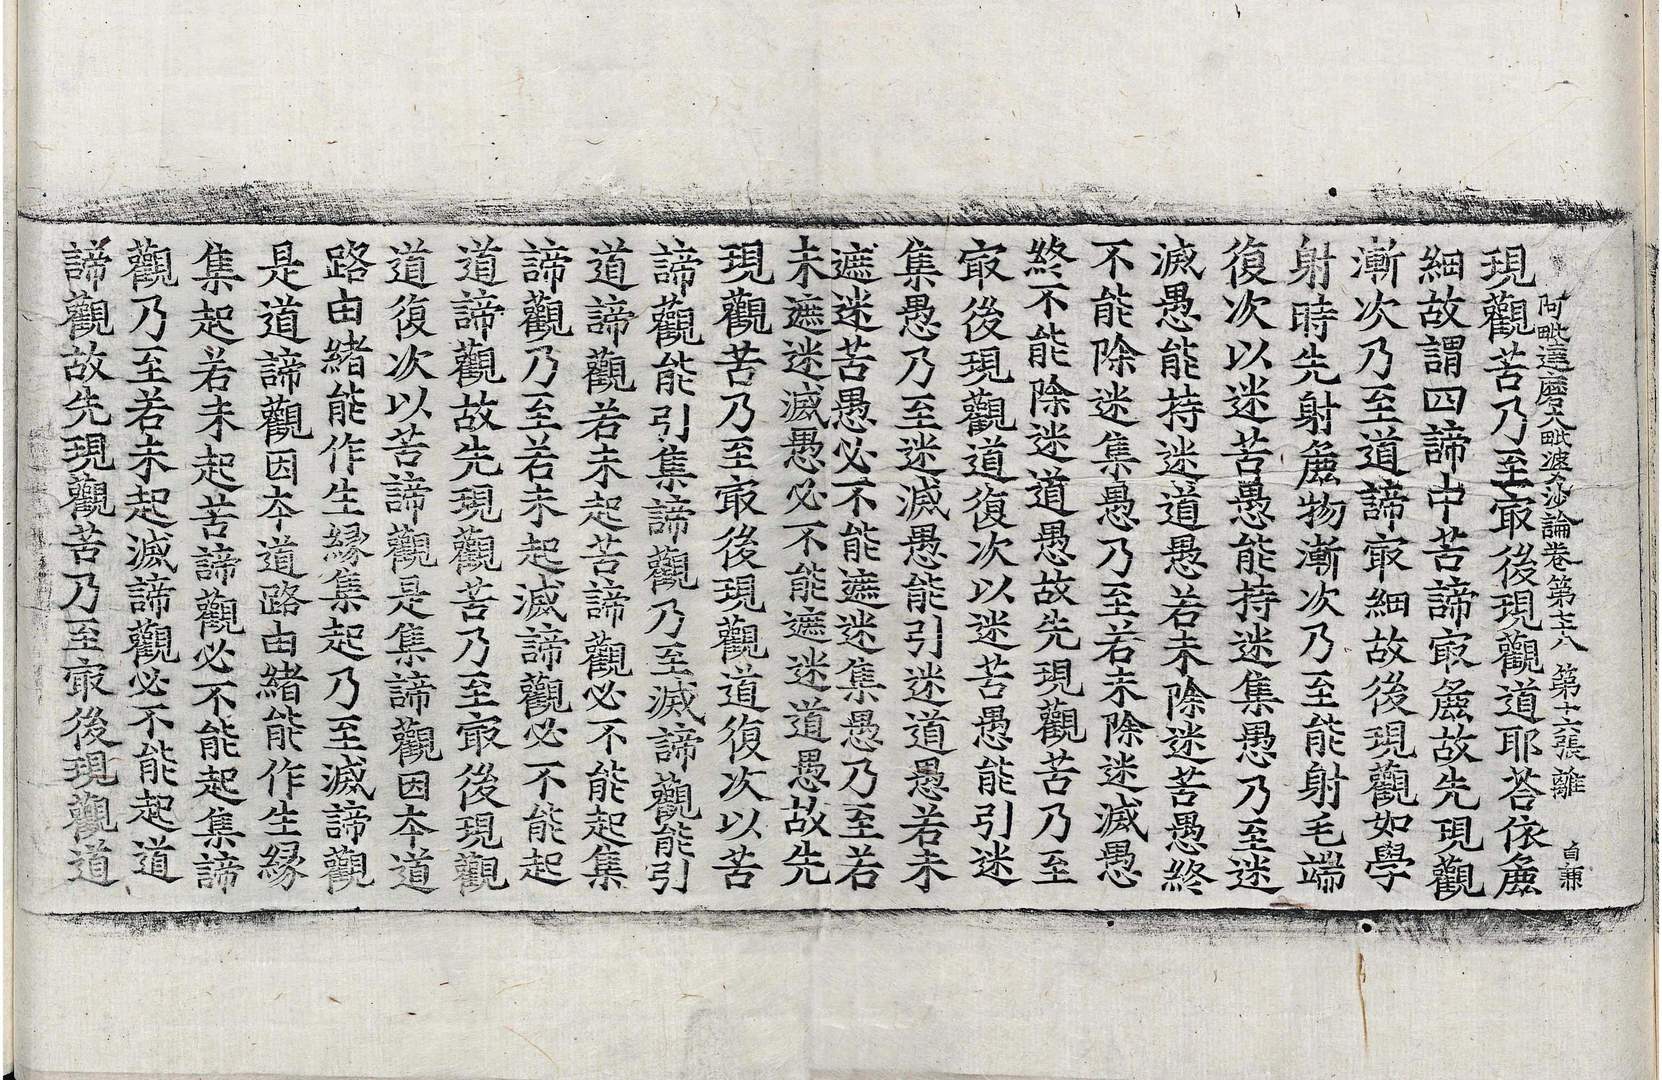 阿毗達磨大毗婆沙論卷第七十八 第十六張 離 自兼
現觀苦乃至㝡後現觀道耶荅依麁
細故謂四諦中苦諦㝡麁故先現觀
漸次乃至道諦㝡細故後現觀如學
射時先射麁物漸次乃至能射毛端
復次以迷苦愚能持迷集愚乃至迷
滅愚能持迷道愚若未除迷苦愚終
不能除迷集愚乃至若未除迷滅愚
終不能除迷道愚故先現觀苦乃至
㝡後現觀道復次以迷苦愚能引迷
集愚乃至迷滅愚能引迷道愚若未
遮迷苦愚必不能遮迷集愚乃至若
未遮迷滅愚必不能遮迷道愚故先
現觀苦乃至㝡後現觀道復次以苦
諦觀能引集諦觀乃至滅諦觀能引
道諦觀若未起苦諦觀必不能起集
諦觀乃至若未起滅諦觀必不能起
道諦觀故先現觀苦乃至㝡後現觀
道復次以苦諦觀是集諦觀因本道
路由緒能作生緣集起乃至滅諦觀
是道諦觀因本道路由緒能作生緣
集起若未起苦諦觀必不能起集諦
觀乃至若未起滅諦觀必不能起道
諦觀故先現觀苦乃至㝡後現觀道